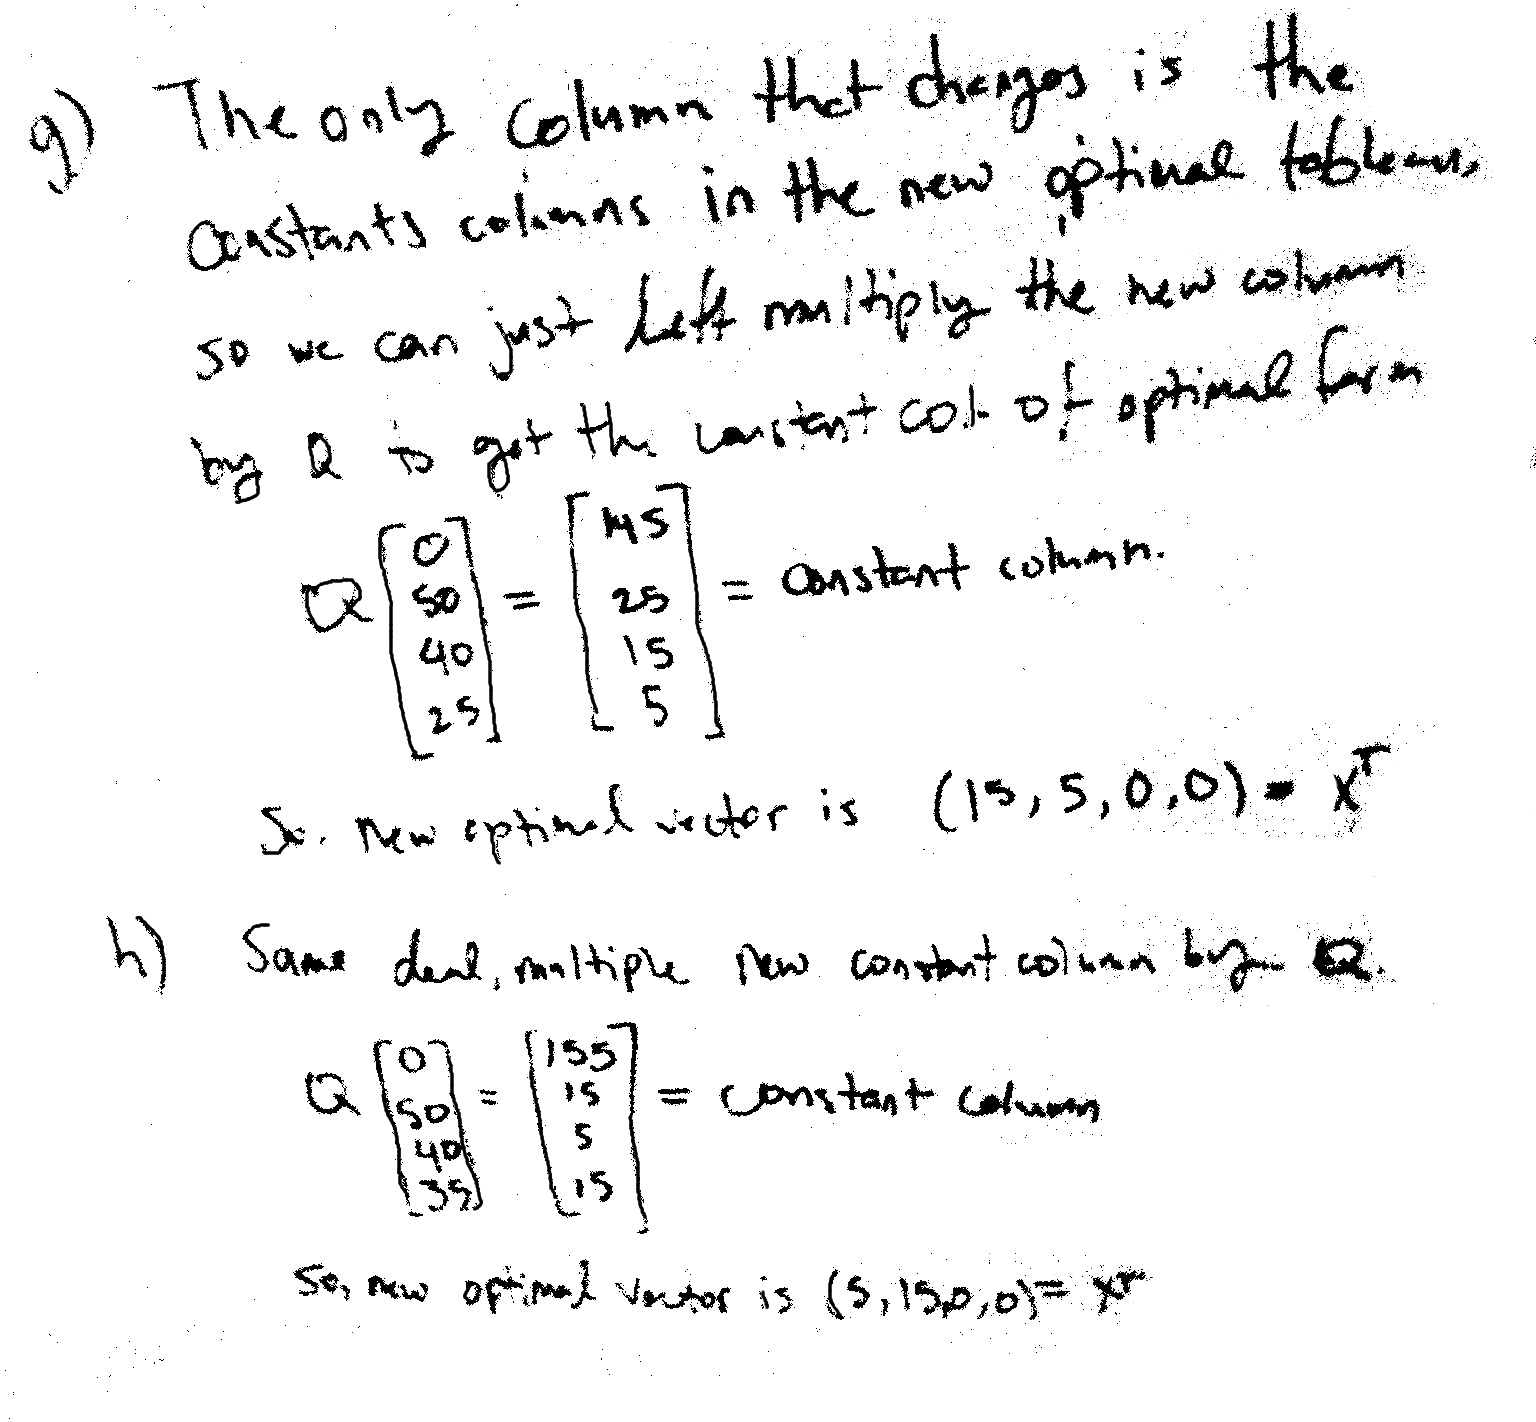 g) The only column that changes is the
constants columns in the new optimal tableau,
so we can just left multiply the new column
by Q to get the constant col. of optimal form
Q [0 50 40 25] = [145 25 15 5] = constant column.
So. new optimal vector is (15, 5, 0, 0) = x^T
h) Same deal, multiple new constant column by Q.
Q [0 50 40 35] = [155 15 5 15] = constant column
So, new optimal vector is (5, 15, 0, 0) = x^T